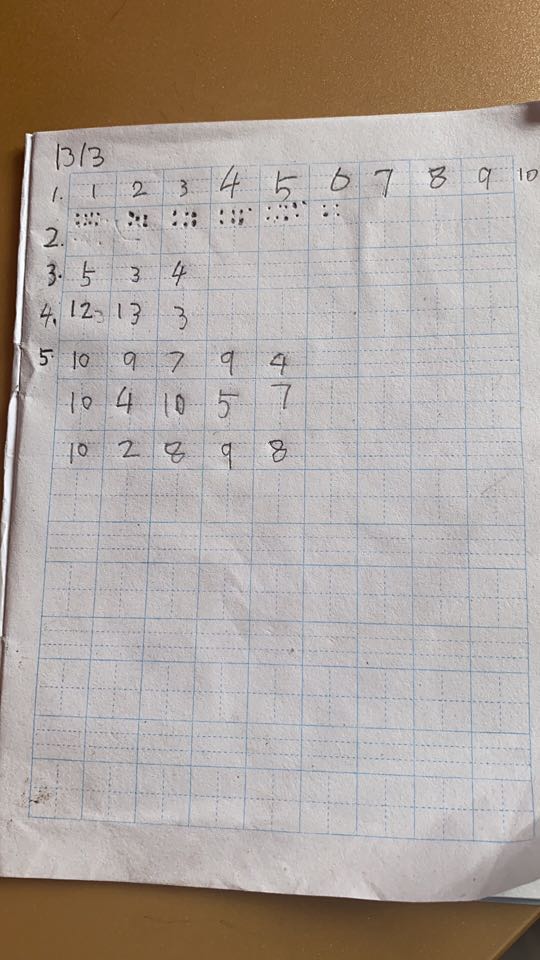 13/3
1. 1 2 3 4 5 6 7 8 9 10
2.
3. 5 3 4
4. 12 13 3
5 10 9 7 9 4
10 4 10 5 7
10 2 8 9 8